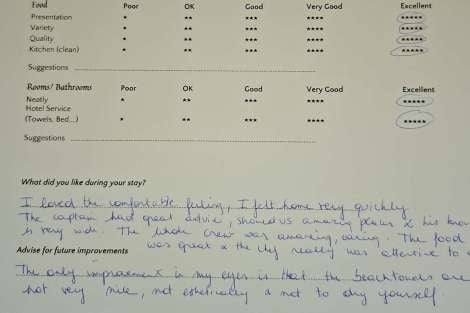 Food Poor OK Good Very Good Excellent
Presentation * ** *** **** *****
Variety * ** *** **** *****
Quality * ** *** **** *****
Kitchen (clean) * ** *** **** *****
Suggestions
Rooms/ Bathrooms Poor OK Good Very Good Excellent
Neatly * ** *** **** *****
Hotel Service
(Towels, Bed...) * ** *** **** *****
Suggestions
What did you like during your stay?
I loved the comfortable feeling, I felt home very quickly
The captain had great advice, showed us amazing places & his know
is very wide. The whole crew was amazing, caring. The food
was great & the chef really was attentive to
Advise for future improvements
The only improvement in my eyes is that the beachtowels are
not very nice, not esthetically & not to dry yourself.